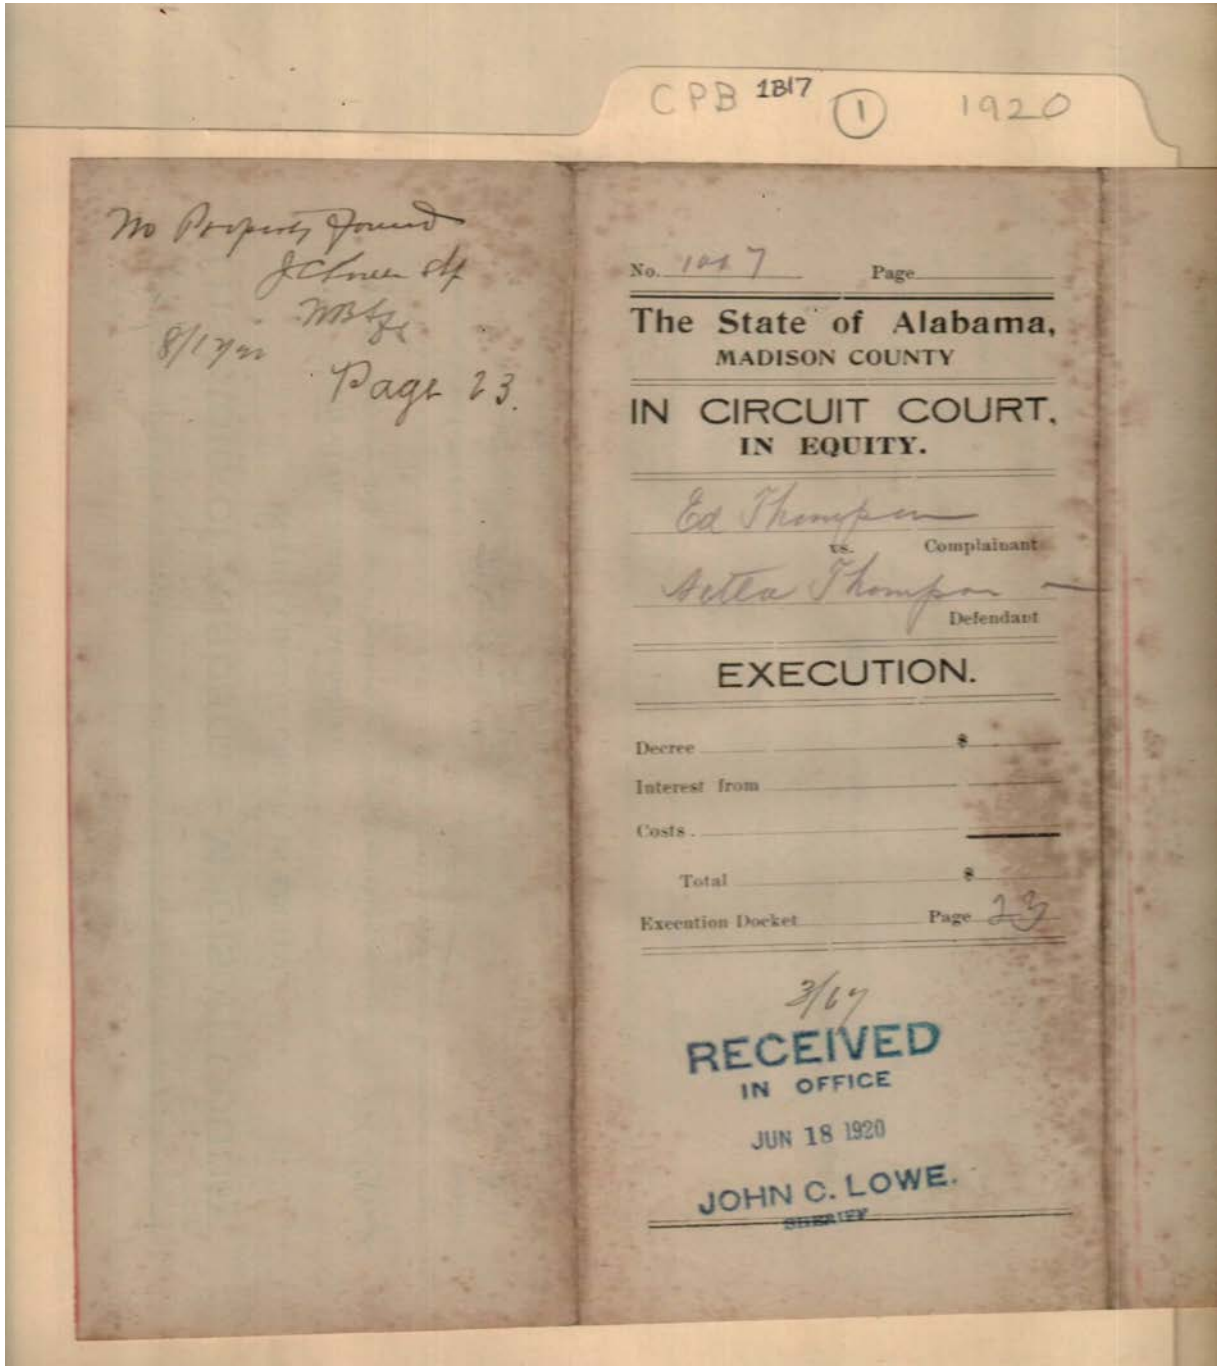 CPB 1817 1 1920
No Property Found
Page 23.
No. Page
The State of Alabama,
MADISON COUNTY
IN CIRCUIT COURT,
IN EQUITY.
Ed Thompson
vs. Complainant
Thompson
Defendant
EXECUTION.
Decree $
Interest from
Costs.
Total $
Execution Docket Page 23
RECEIVED
IN OFFICE
JUN 18 1920
JOHN C. LOWE.
SHERIFF